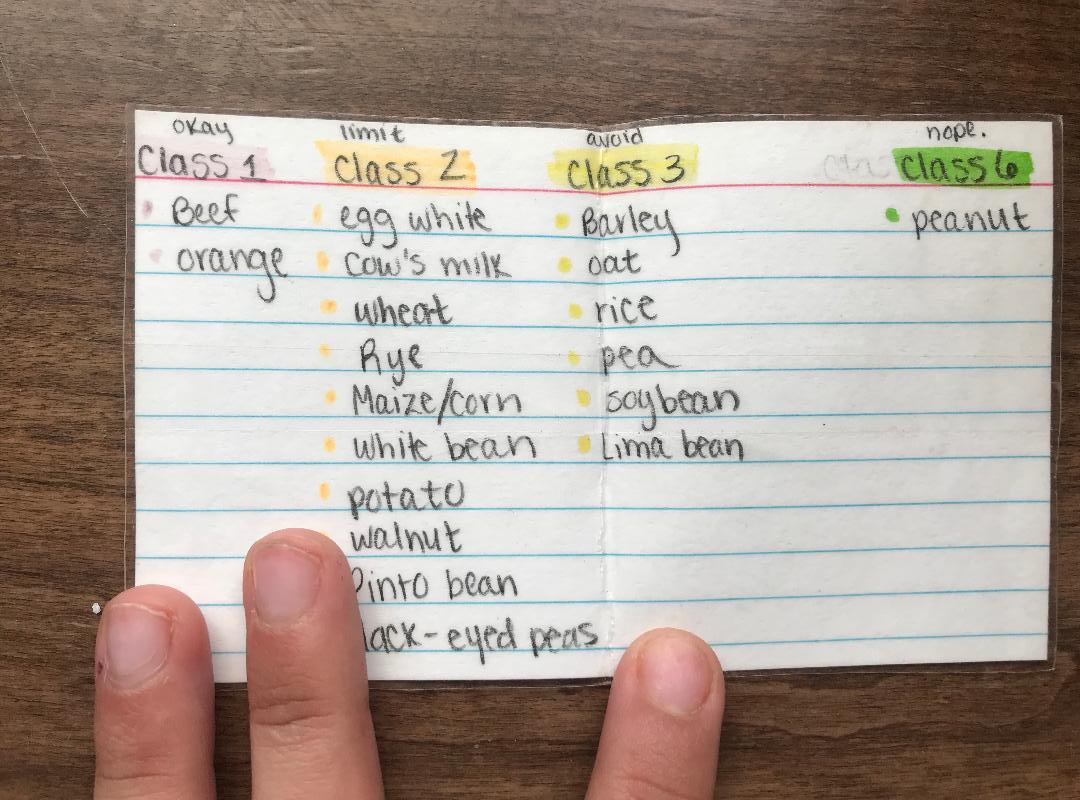 okay limit avoid nope.
Class 1 Class 2 Class 3 Class 6
Beef egg white Barley peanut
orange Cow's milk oat
wheat rice
Rye pea
Maize/corn soybean
white bean Lima bean
potato
walnut
Pinto bean
lack-eyed peas